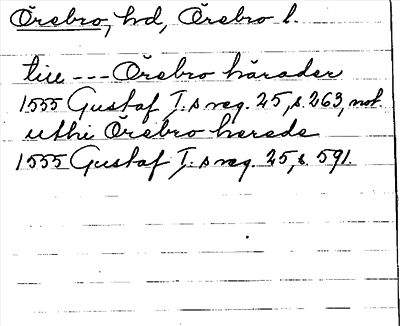 Örebro, hd, Örebro l.
till --- Örebro härader
1555 Gustaf I:s reg. 25, s. 263, not.
uthi Örebro herede
1555 Gustaf I:s reg. 25, s. 591.